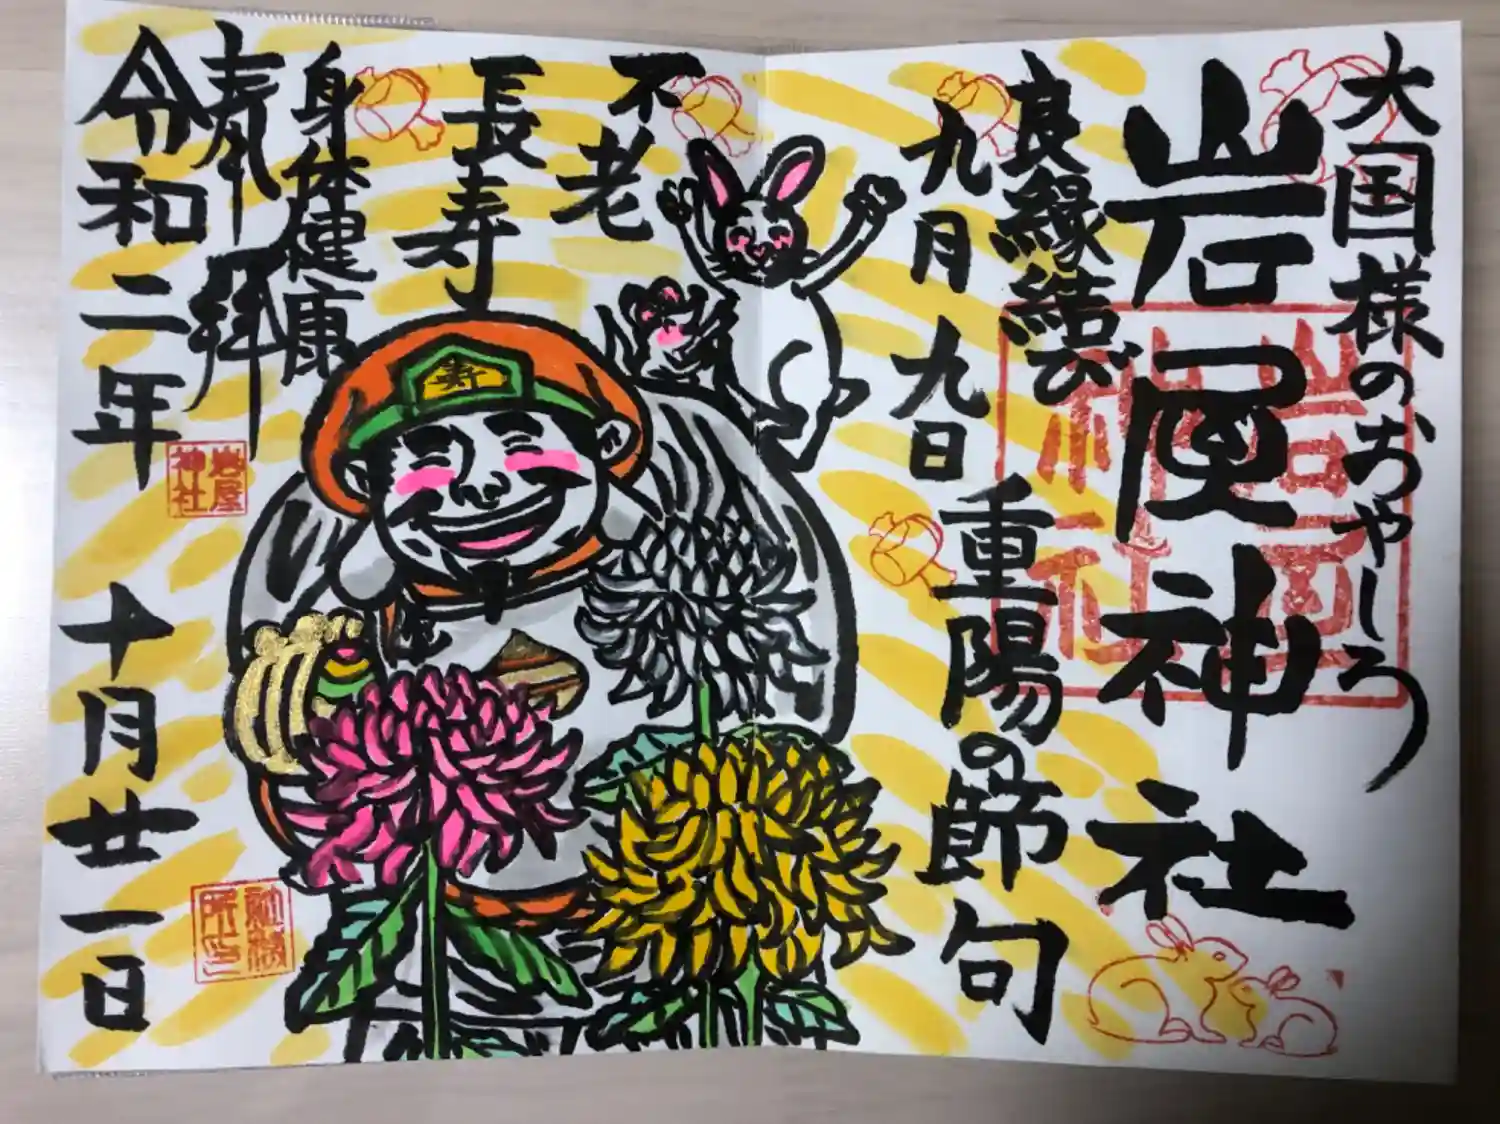 大国様のおやしろ
岩屋神社
良縁結び
九月九日
重陽の節句
不老
長寿
寿
身体健康
奉拝
令和二年 十月廿一日
岩屋神社
岩屋
神社